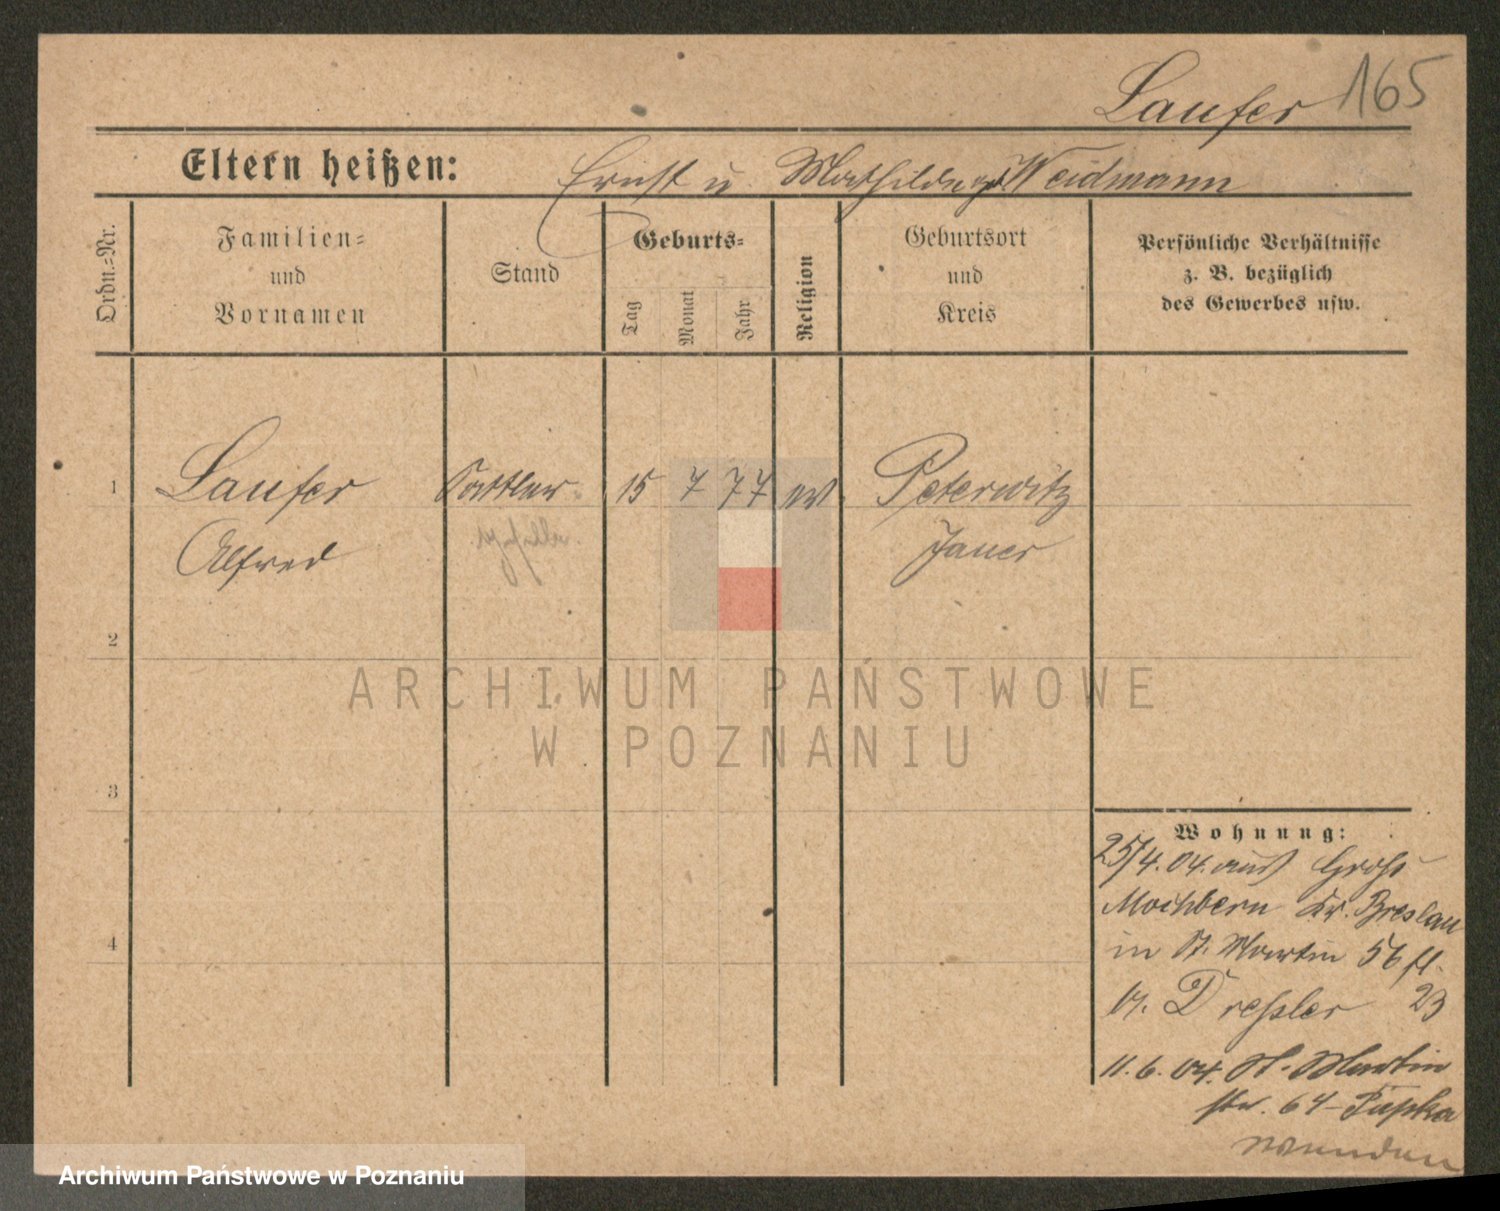 Laufer 165
Eltern heißen: Ernst u Mathilde geb Weidmann
Ordn.-Nr.
Familien-
und
Vornamen
Stand
Geburts-
Tag
Monat
Jahr
Religion
Geburtsort
und
Kreis
Persönliche Verhältnisse
z. B. bezüglich
des Gewerbes usw.
1 Laufer Sattler 15 7 77 ev. Peterwitz
Alfred Jauer
2
3
4
Wohnung:
25/4.04. aus Groß
Mochbern Kr. Breslau
in St. Martin 56
Dreßler 23
11.6.04. St. Martin
str. 64
wenden
ARCHIWUM PAŃSTWOWE
W POZNANIU
Archiwum Państwowe w Poznaniu